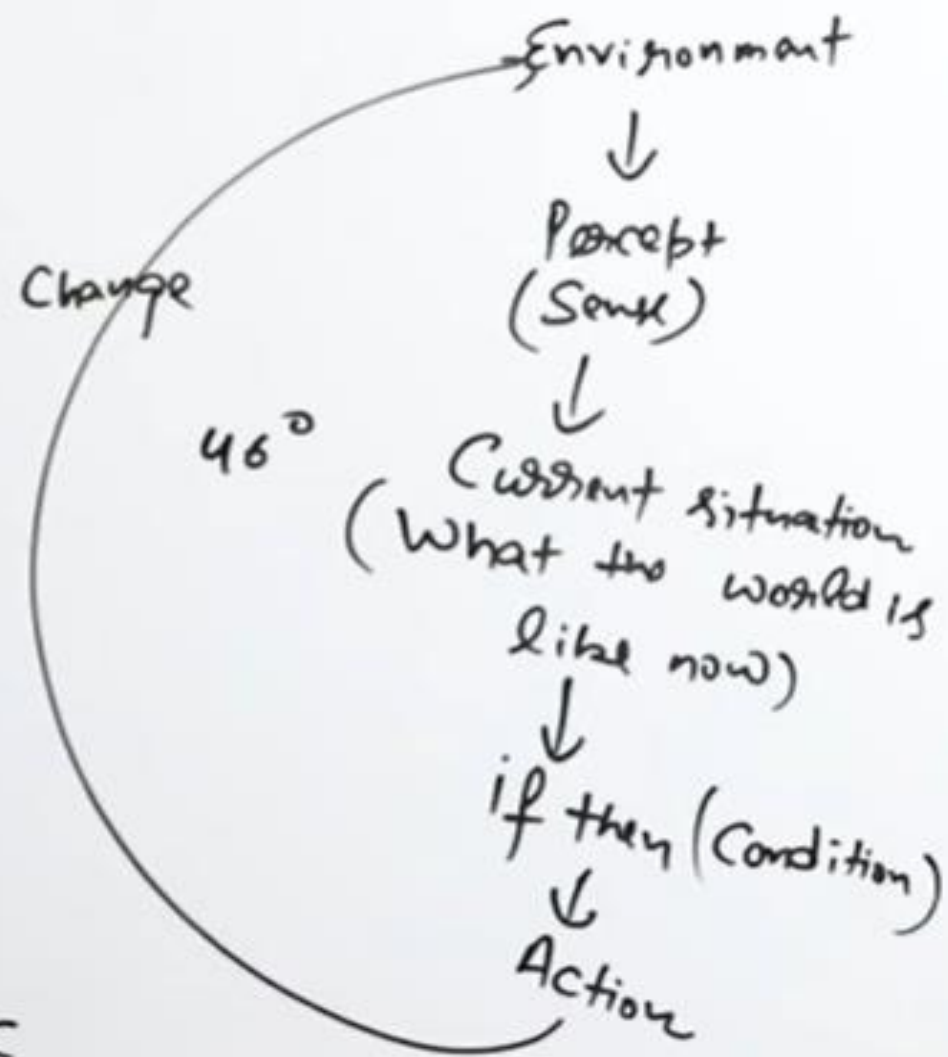 Environment
Percept
(Sense)
Change
46°
Current situation
(What the world is
like now)
if then (Condition)
Action